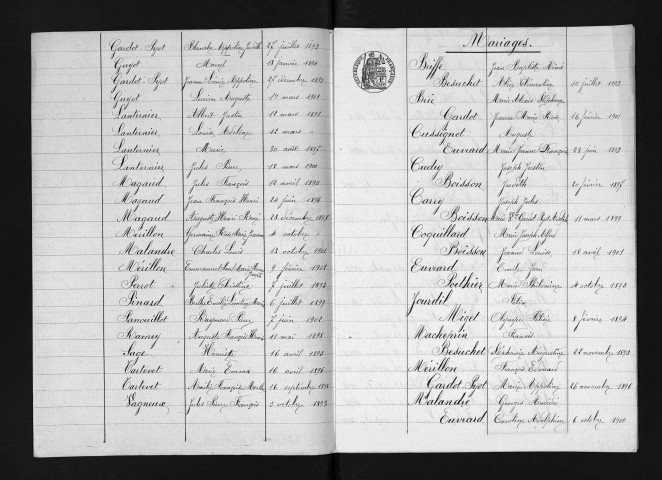 Gardot-Pyot Blanche Appoline Judith 27 juillet 1893
Guyot Marcel 18 janvier
Gardot-Pyot Jeanne Louise Appoline 27 décembre
Guyot Lucien Auguste 14 mars 1901
Lanternier Albert Justin 12 mars 1895
Lanternier Louise 12 mars "
Lanternier Marie 20 août 1895
Lanternier Jules Pierre 18 mars 1900
Magaud Jules François 12 avril
Magaud Jean François Henri 24 juin 1896
Magaud Auguste Henri René 23 décembre 1895
Mérillon Germaine Marie Jeanne 4 octobre "
Malandre Charles Louis 13 octobre 1901
Mérillon Emmanuel Marie 9 février 1902
Perrot Juliette Christine 7 juillet 1893
Pinard Berthe Marie 6 juillet 1899
Panouillot Raymond Pierre 7 juin 1902
Ramey Auguste François Henri 11 mai 1895
Sage Henriette 16 avril
Tartevet Marie Emma 10 avril 1896
Tartevet François 16 septembre 1898
Vagneux Jules Pierre François 3 octobre 1893
Mariages.
RÉPUBLIQUE FRANÇAISE
Biffe Jean Baptiste
Besuchet Alice Clémentine 10 juillet 1893
Brie Marie
Gardot Jeanne Marie 16 février 1901
Cussignot Auguste
Euvrard Marie Jeanne Françoise 22 juin 1893
Cudey Joseph Justin
Boisson Judith 20 février 1895
Carry Joseph Jules
Boisson Marie 11 mars 1899
Coquillard Marie Joseph
Boisson Jeanne Louise 18 avril 1901
Euvrard Emile
Pothier Marie Philomène 4 octobre 1893
Jourdil Félix
Miget 8 février 1894
Macheprin François
Besuchet Stéphanie Augustine 22 novembre 1893
Mérillon François Edouard
Gardot-Pyot Marie Appoline 26 novembre 1896
Malandre Georges
Euvrard Caroline 6 octobre 1900